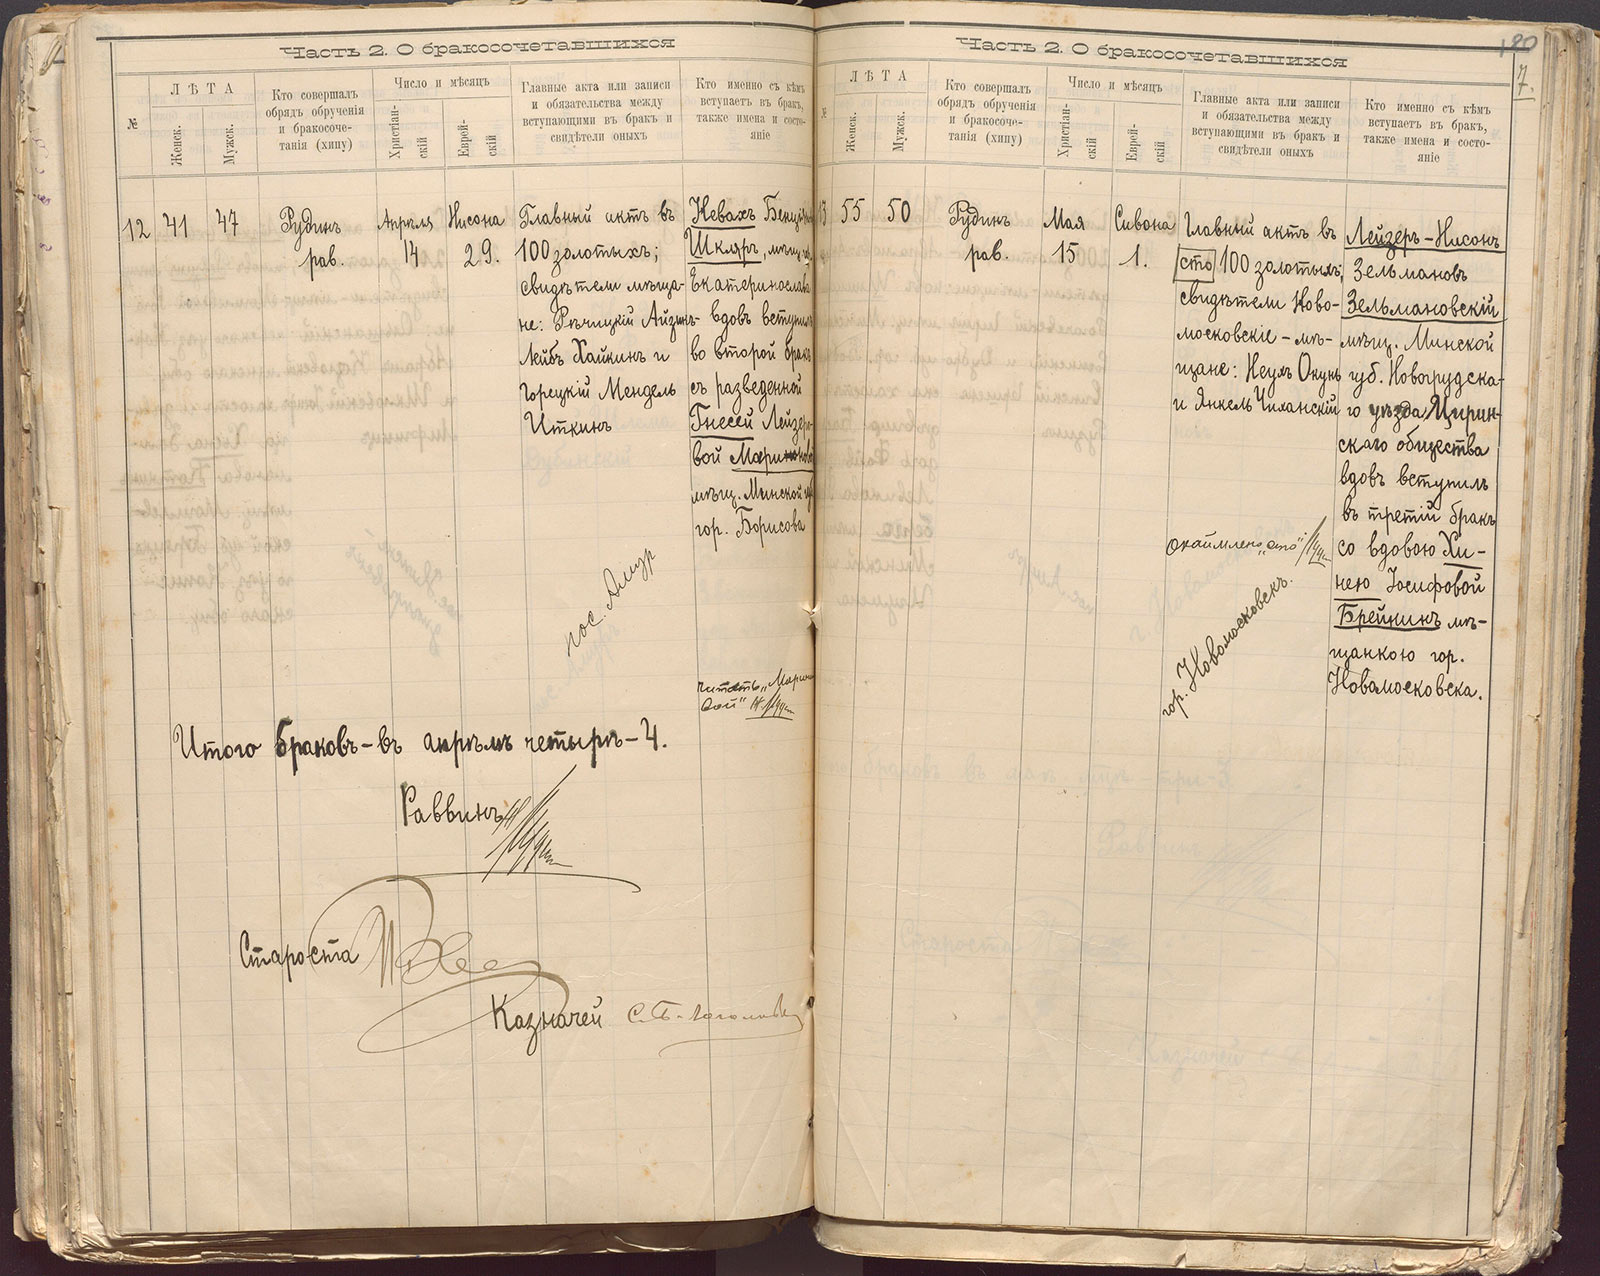 Часть 2. О бракосочетавшихся
№
ЛѢТА
Женск.
Мужск.
Кто совершалъ
обрядъ обрученія
и бракосоче-
танія (хипу)
Число и мѣсяцъ
Христіан-
скій
Еврей-
скій
Главные акта или записи
и обязательства между
вступающими въ бракъ и
свидѣтели оныхъ
Кто именно съ кѣмъ
вступаетъ въ бракъ,
также имена и состо-
яніе
12
41
47
Рудинъ
рав.
Апрѣля
14
Нисона
29.
Главный актъ въ
100 золотыхъ;
свидѣтели мѣща-
не: Рѣчицкій Айзикъ-
Лейбъ Хайкинъ и
Горецкій Мендель
Иткинъ
пос. Амур
Невахъ
Шкляръ, мѣщ.
Екатеринослава
вдовъ вступилъ
во второй бракъ
съ разведенной
Гнесей Лейзеро-
вой
мѣщ. Минской губ
гор. Борисова
читать
Итого браковъ - въ апрѣлѣ четыре - 4.
Раввинъ
Староста
Казначей
Часть 2. О бракосочетавшихся
120
7.
№
ЛѢТА
Женск.
Мужск.
Кто совершалъ
обрядъ обрученія
и бракосоче-
танія (хипу)
Число и мѣсяцъ
Христіан-
скій
Еврей-
скій
Главные акта или записи
и обязательства между
вступающими въ бракъ и
свидѣтели оныхъ
Кто именно съ кѣмъ
вступаетъ въ бракъ,
также имена и состо-
яніе
13
55
50
Рудинъ
рав.
Мая
15
Сивона
1.
Главный актъ въ
сто 100 золотыхъ,
свидѣтели Ново-
московскіе - мѣ-
щане: Неухъ Окунь
и Янкель Чиханскій
окаймлено „сто“
гор. Новомосковскъ.
Лейзеръ-Нисонъ
Зельмановъ
Зельмановскій
мѣщ. Минской
губ. Новогрудска-
го уѣзда Мирин-
скаго общества
вдовъ вступилъ
въ третій бракъ
со вдовою Хи-
нею Іосифовой
Брейнинъ мѣ-
щанкою гор.
Новомосковска.